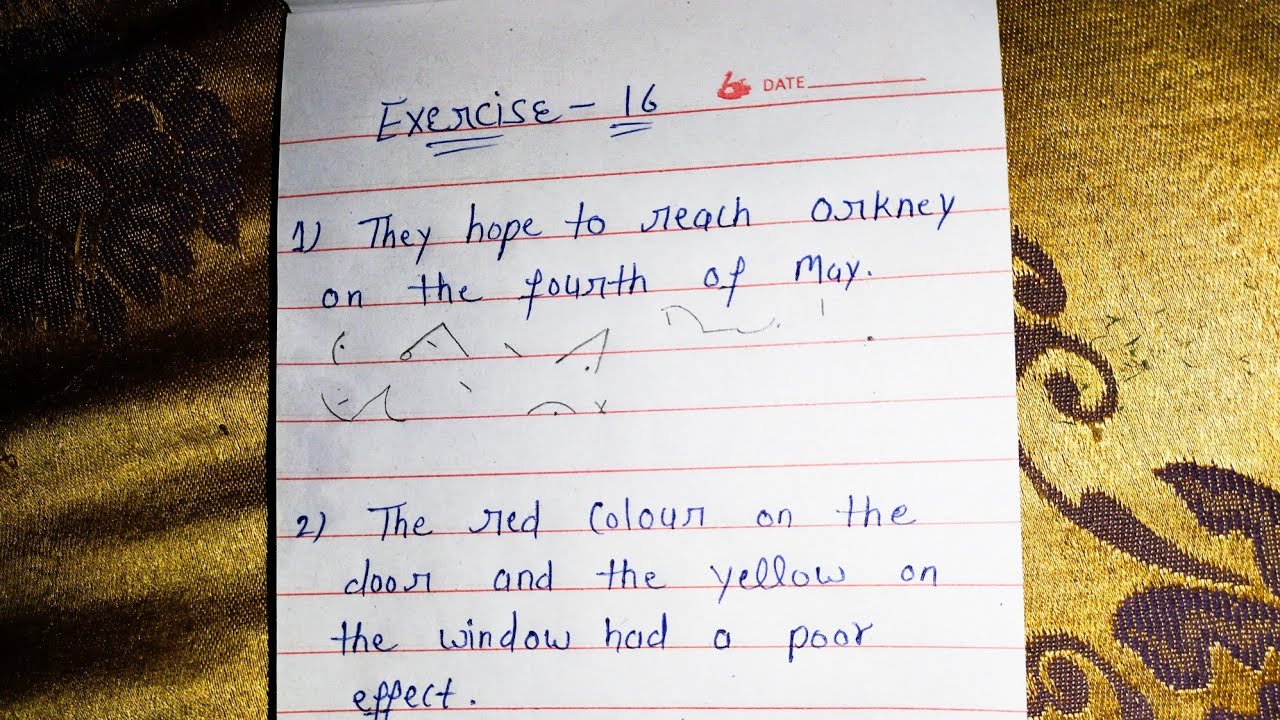 DATE
Exercise - 16
1) They hope to reach Orkney
on the fourth of May.
2) The red Colour on the
door and the yellow on
the window had a poor
effect.